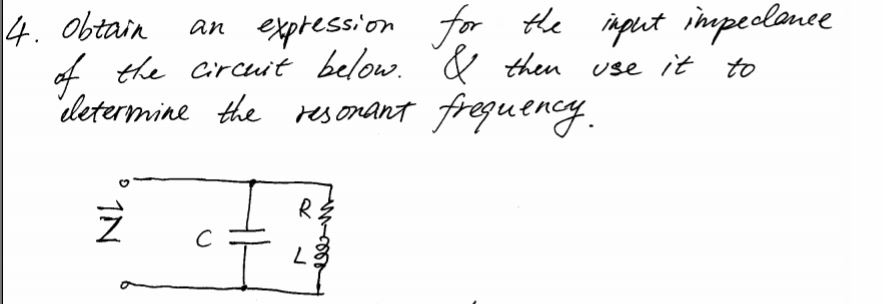 4. Obtain an expression for the input impedance
of the circuit below. & then use it to
determine the resonant frequency.
R
Z
C
L